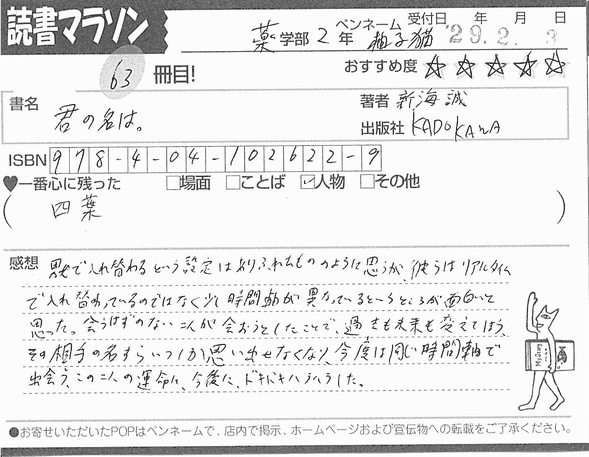 読書マラソン
薬学部2年 ペンネーム 柚子猫 受付日 年 月 日
'29.2.3
63冊目! おすすめ度 ☆☆☆☆☆
書名 君の名は。
著者 新海誠
出版社 KADOKAWA
ISBN 978-4-04-102622-9
♥一番心に残った □場面 □ことば ☑人物 □その他
( 四葉 )
感想 男女で入れ替わるという設定はありふれたもののように思うが、彼らはリアルタイム
で入れ替わっているのではなく少し時間軸が異なっているというところが面白いと
思った。会うはずのない二人が会おうとしたことで、過去も未来も変えてしまう、
その相手の名すらいつしか思い出せなくなり、今度は同じ時間軸で
出会う、この二人の運命に、今後に、ドキドキハラハラした。
●お寄せいただいたPOPはペンネームで、店内で掲示、ホームページおよび宣伝物への転載をご了承ください。